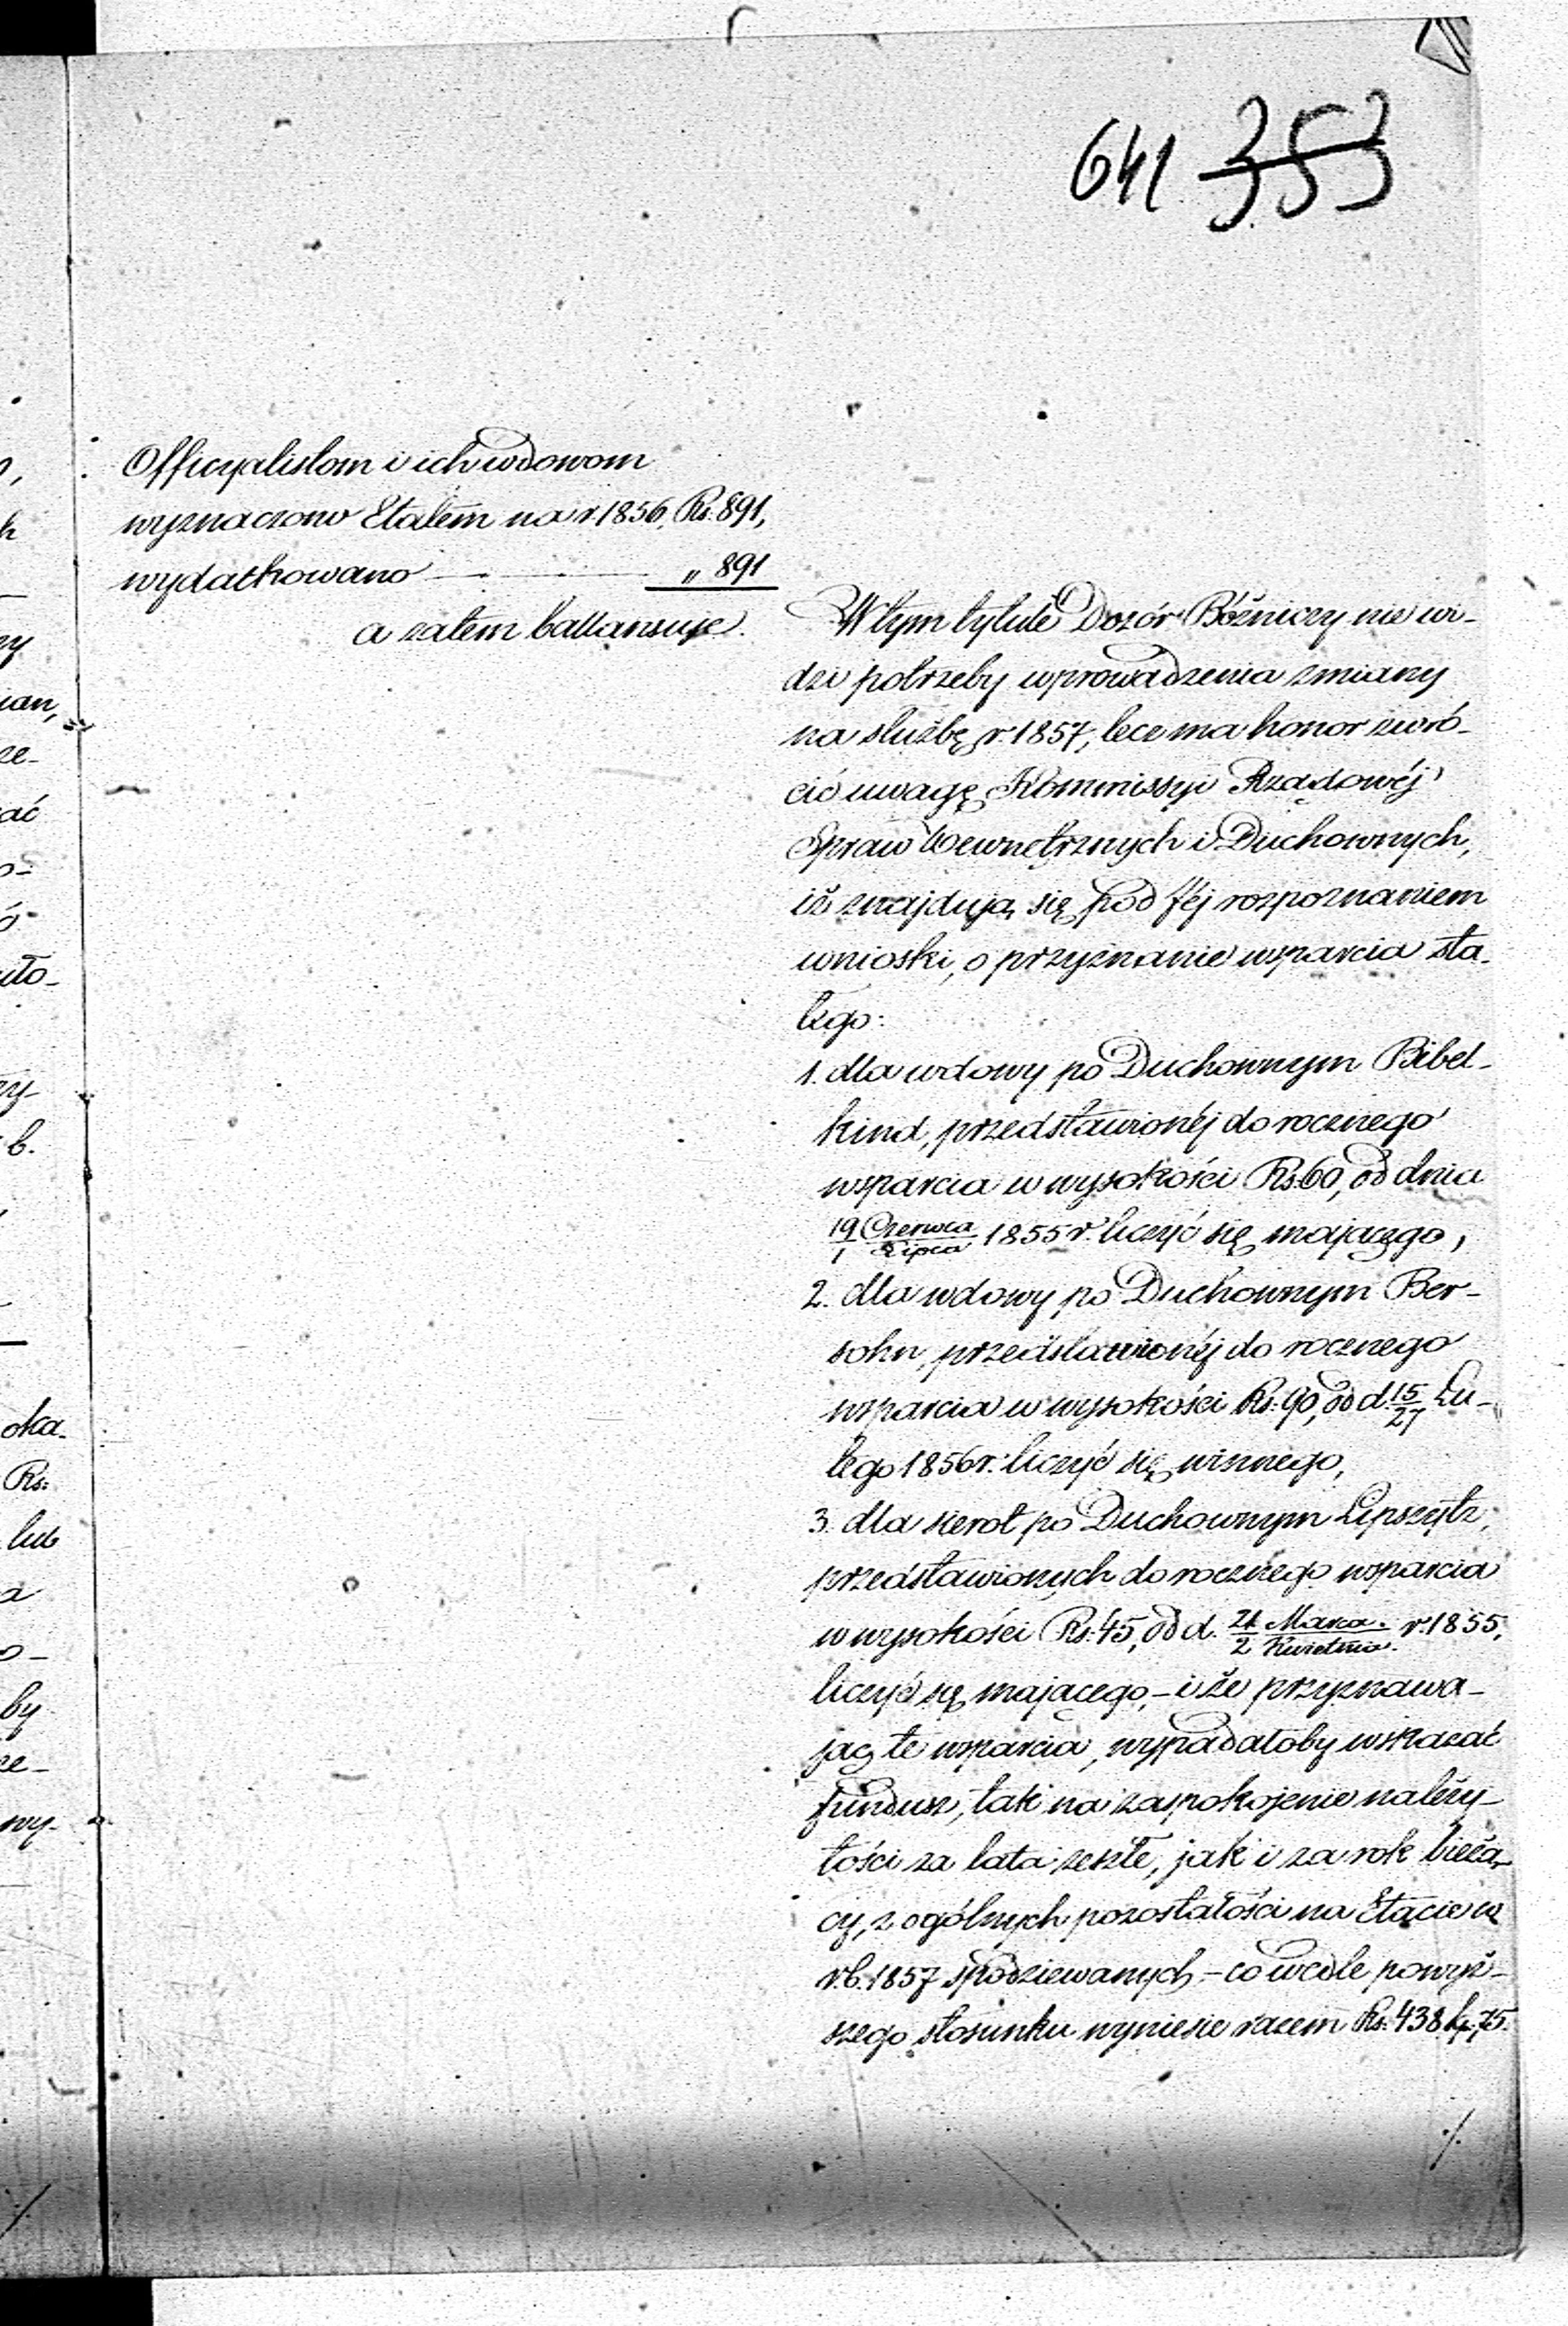 641 353
Officyalistom i ich wdowom
wyznaczono Etatem na r. 1856, Rs. 891,
wydatkowano — " 891
a zatem ballansuje.
W tym tytule Dozór Bóżniczy nie wi-
dzi potrzeby wprowadzenia zmiany
na służbę r. 1857, lecz ma honor zwró-
cić uwagę Kommissyi Rządowéj
Spraw Wewnętrznych i Duchownych,
iż znajdują się pod Jéj rozpoznaniem
wnioski, o przyznanie wsparcia sta-
łego:
1. dla wdowy po Duchownym Bibel-
kind, przedstawionéj do rocznego
wsparcia w wysokości Rs. 60, od dnia
19/1 Czerwca/Lipca 1855 r. liczyć się mającego,
2. dla wdowy po Duchownym Ber-
sohn, przedstawionéj do rocznego
wsparcia w wysokości Rs. 90, od d. 15/27 Lu-
tego 1856 r. liczyć się winnego,
3. dla sierot po Duchownym Lipszytz,
przedstawionych do rocznego wsparcia
w wysokości Rs. 45, od d. 21/2 Marca/Kwietnia. r. 1855,
liczyć się mającego, – i że przyznawa-
jąc te wsparcia, wypadałoby wskazać
fundusz, tak na zaspokojenie należy-
tości za lata zeszłe, jak i za rok bieżą-
cy, z ogólnych pozostałości na Etacie w
r. b. 1857 spodziewanych – co wedle powyż-
szego stosunku wyniesie razem Rs. 438 k. 75.
./.